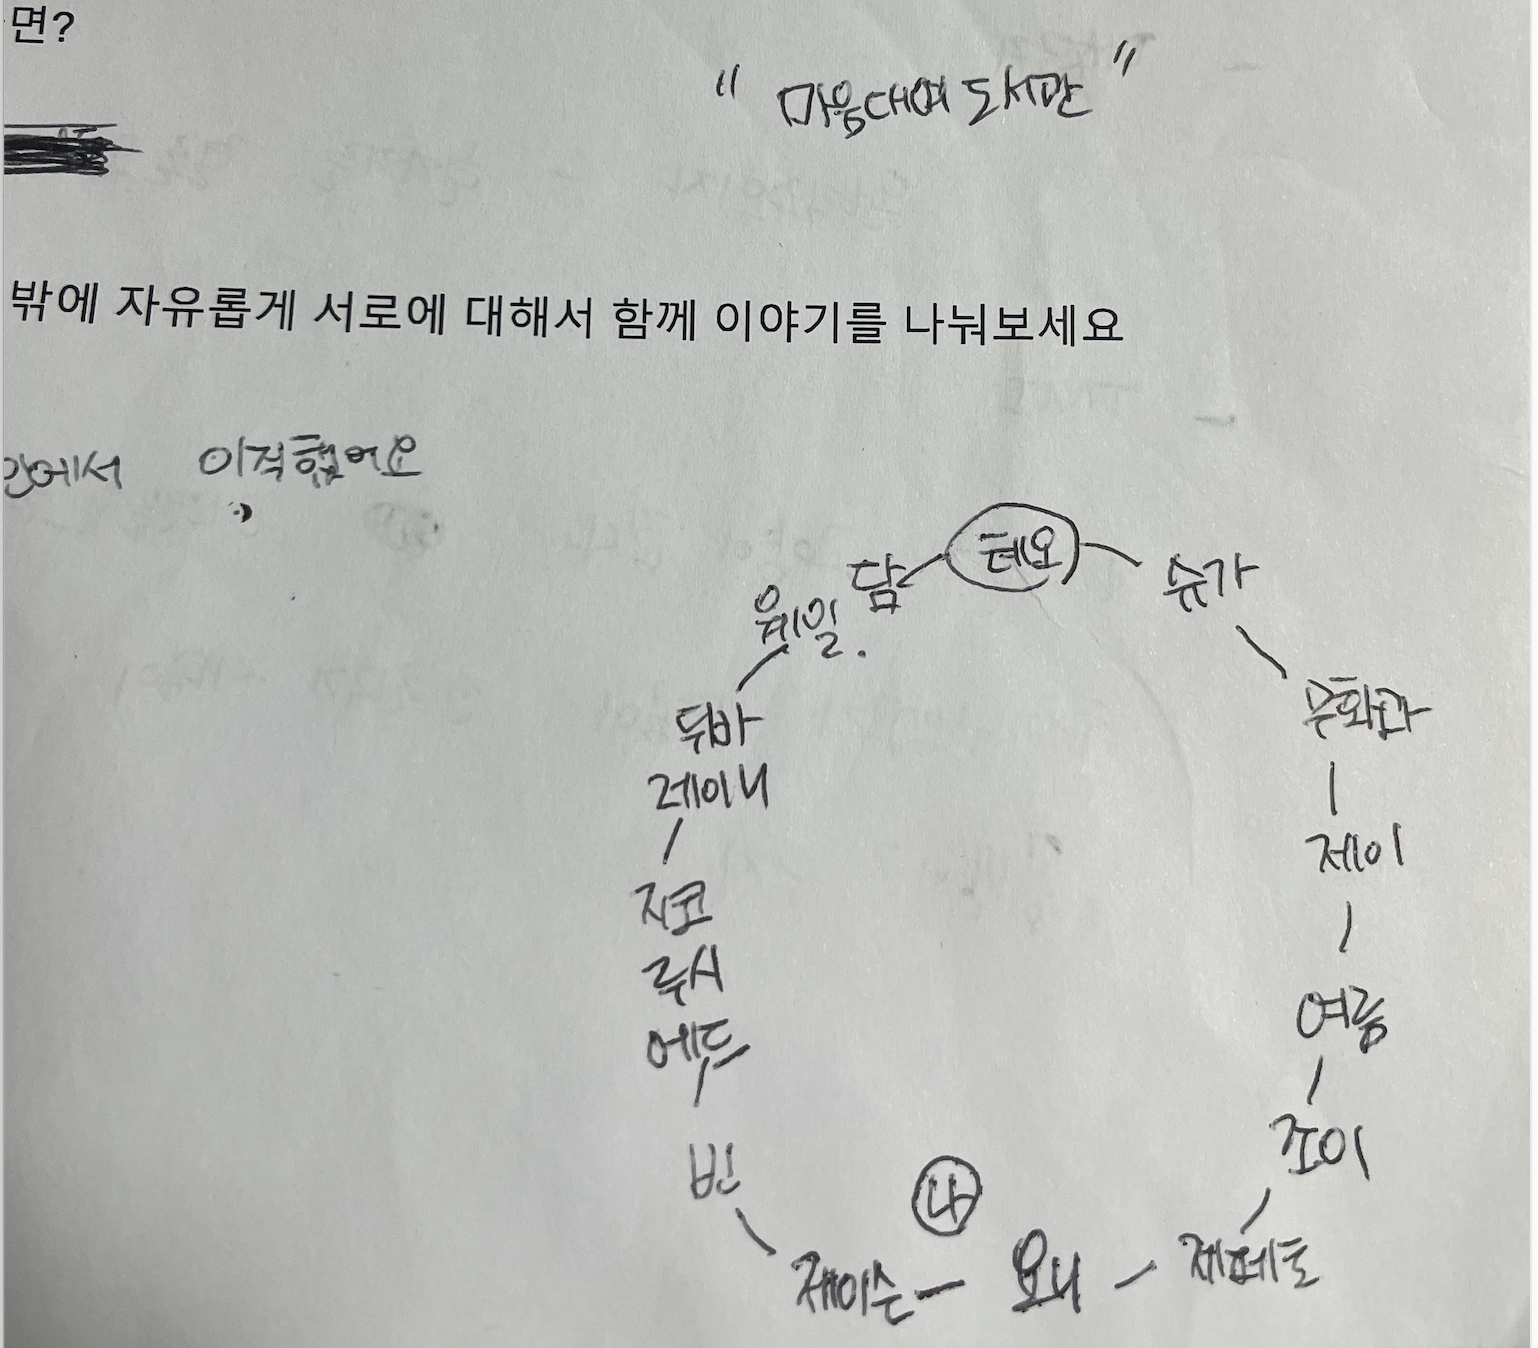 면?
" 마음대여 도서관 "
밖에 자유롭게 서로에 대해서 함께 이야기를 나눠보세요
간에서 이직했어요
담 테오 슈가
웨일.
뒤바 무화과
레이니
제이
지코
루시
여름
에드
조이
빈
나
제이슨 요니 제페토